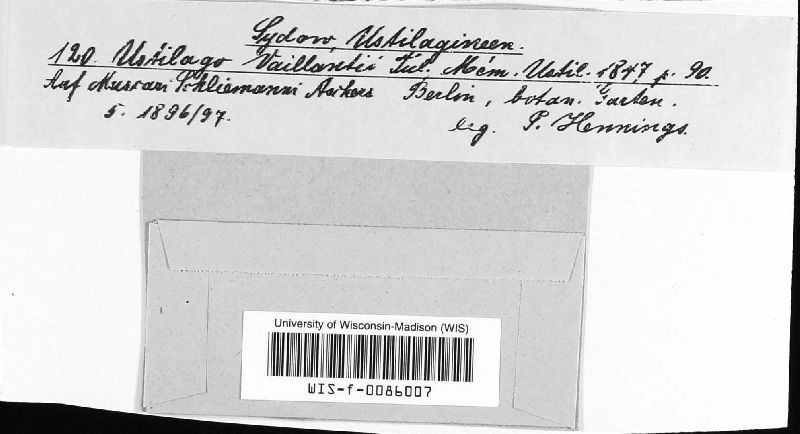 Sydow, Ustilagineen.
120. Ustilago Vaillantii Tul. Mém. Ustil. 1847 p. 90.
Auf Muscari Schliemanni Aschers Berlin, botan. Garten.
5. 1896/97. leg. P. Hennings.
University of Wisconsin-Madison (WIS)
WIS-f-0086007